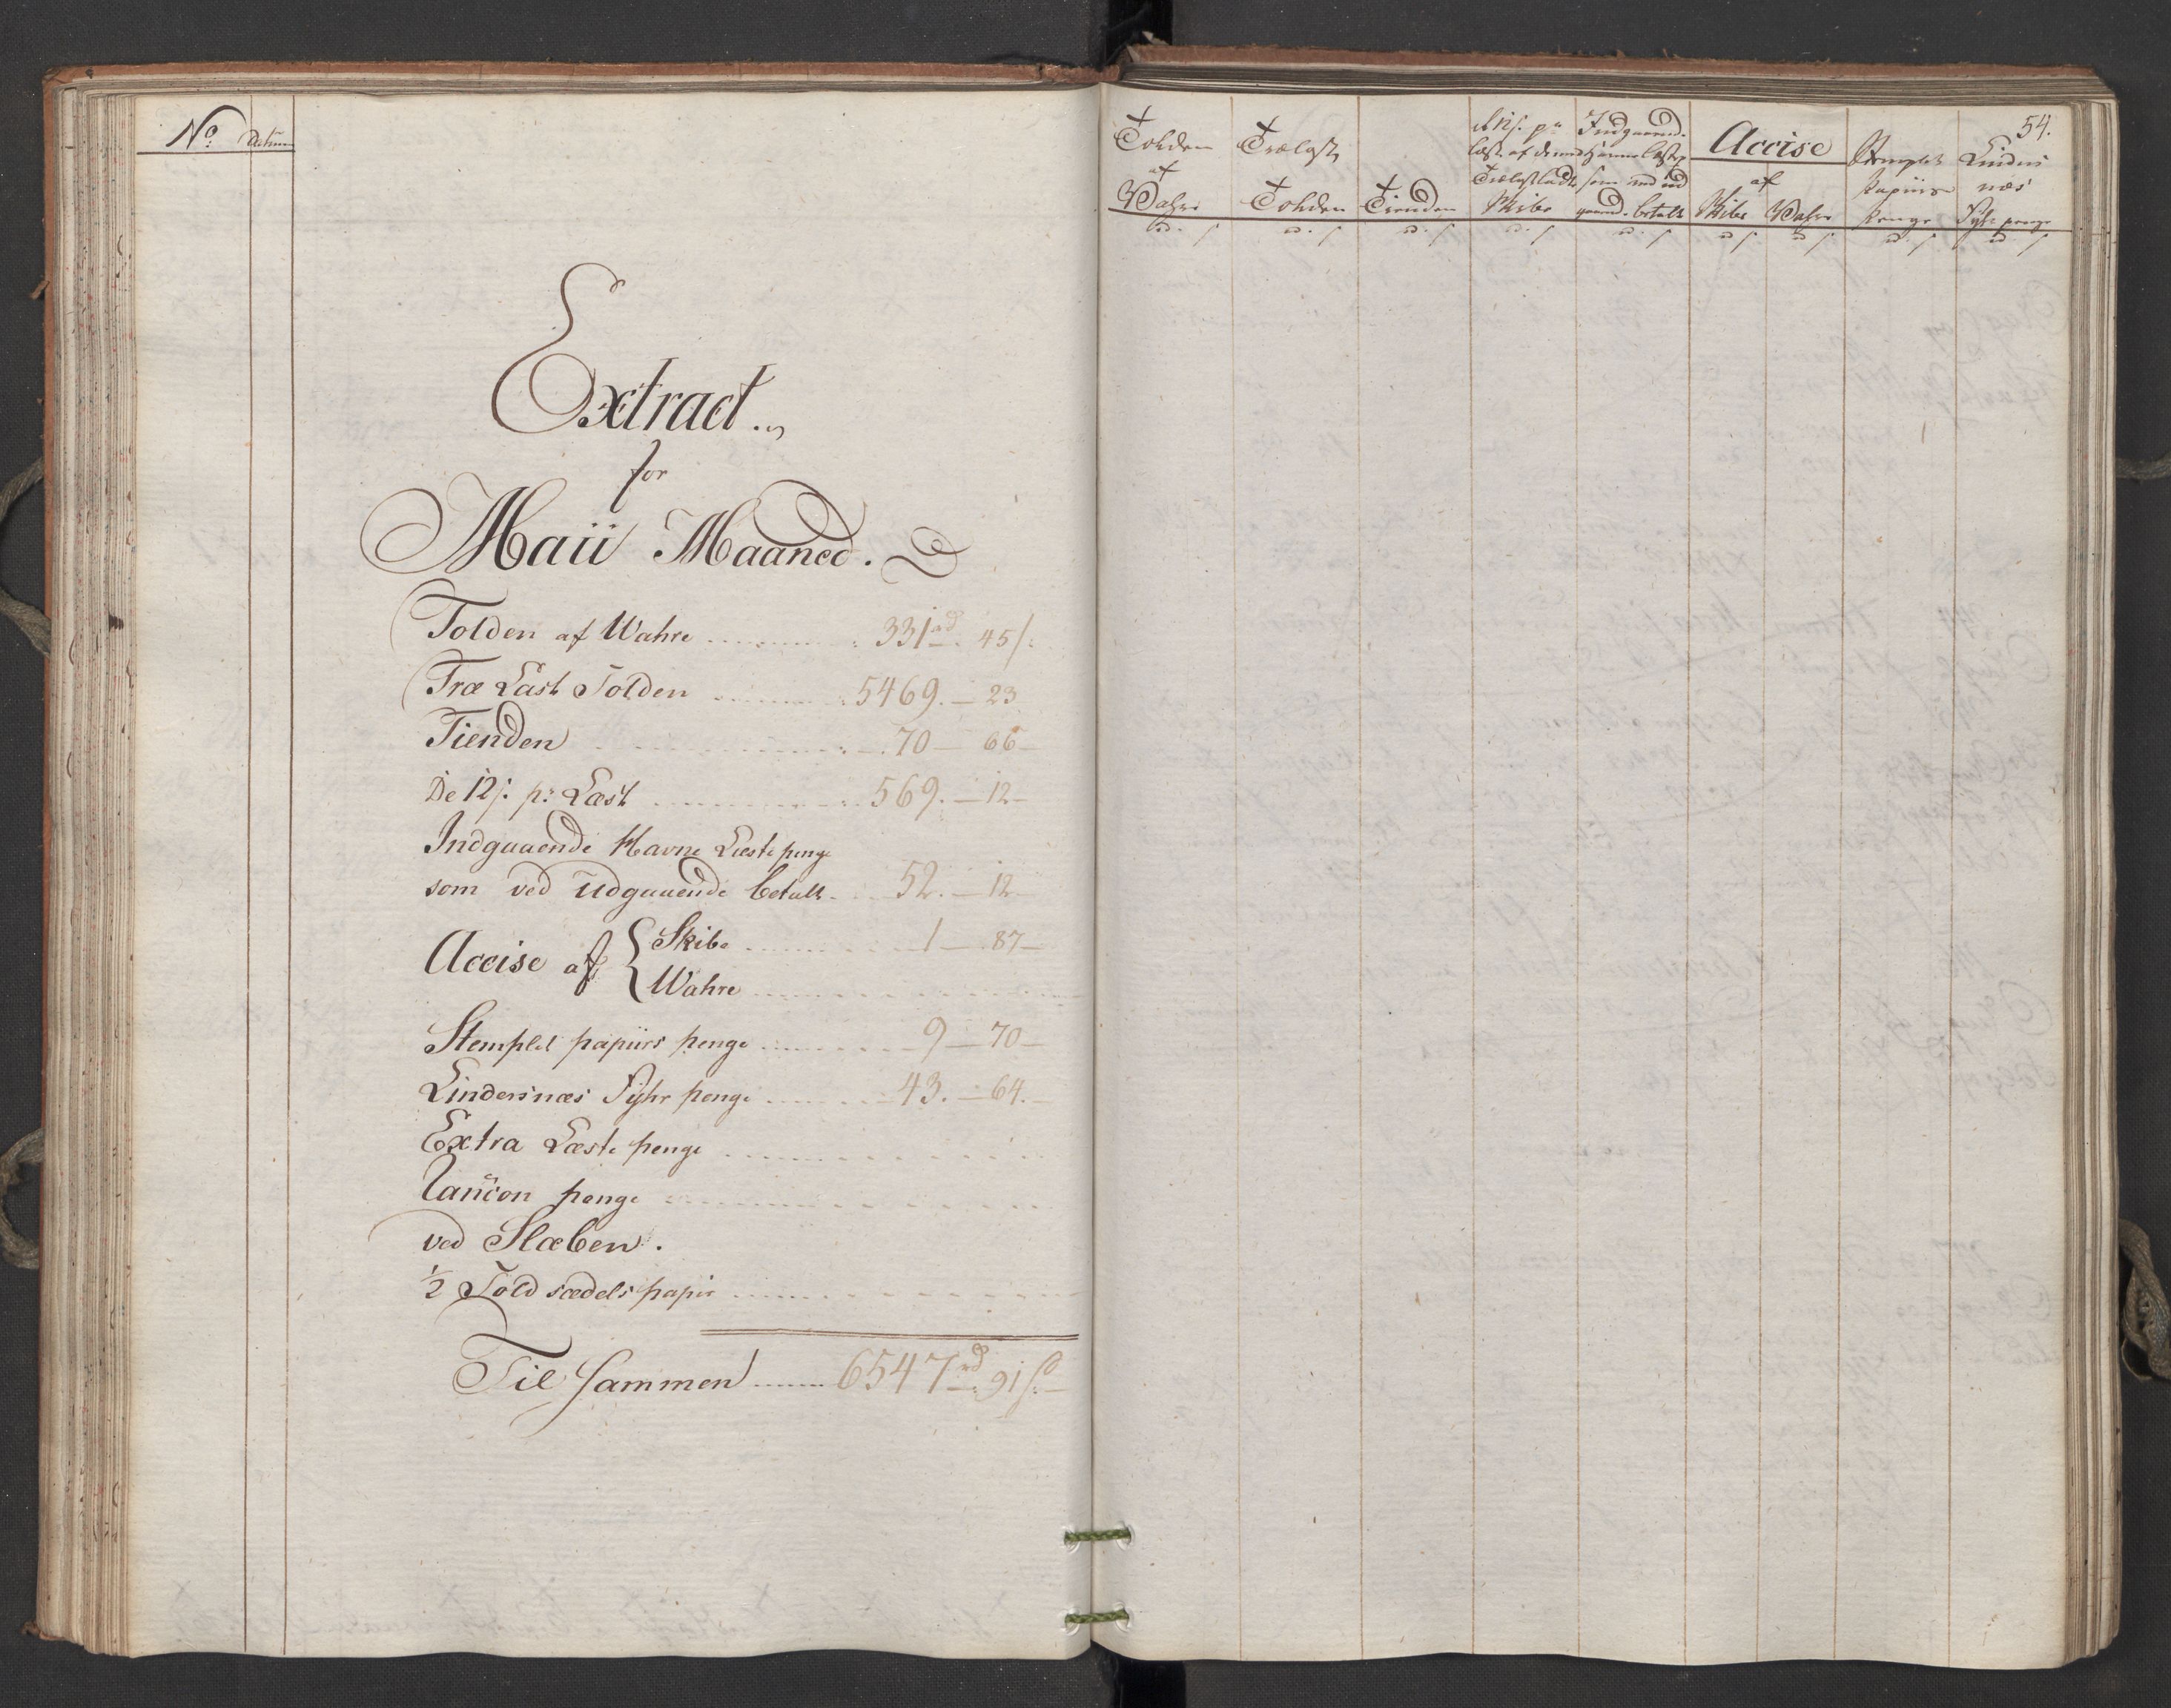 No. Datum
Extract.
for
Maii Maaned.
Tolden af Wahre ........ 331 rd. 45 s:
Træ Last Tolden ........ 5469. — 23
Tienden ........ 70 — 66 —
De 12 s: pr: Læst ........ 569. — 12 —
Indgaaende Havne Læste penge
som ved Udgaaende betalt. 52. — 12
Accise af { Skibe ........ 1 — 87 —
Wahre ........
Stemplet papiirs penge ........ 9 — 70 —
Lindersnæs Fyhr penge ........ 43. — 64. —
Extra Læste penge ........
penge ........
ved Slæben.
1/2 Told sædels papir ........
Til sammen ........ 6547 rd. 91 s:
54.
Tolden
af
Wahre
Trælast
Tolden
Tienden
12 s. pr
læst af
Trælast
Skibe
Indgaaend.
Havne læstp
som ved ud
gaaend. betalt
Accise
af
Skibe Wahre
Stemplet
Papiirs
Penge
Linders
næs
Fyhr penge